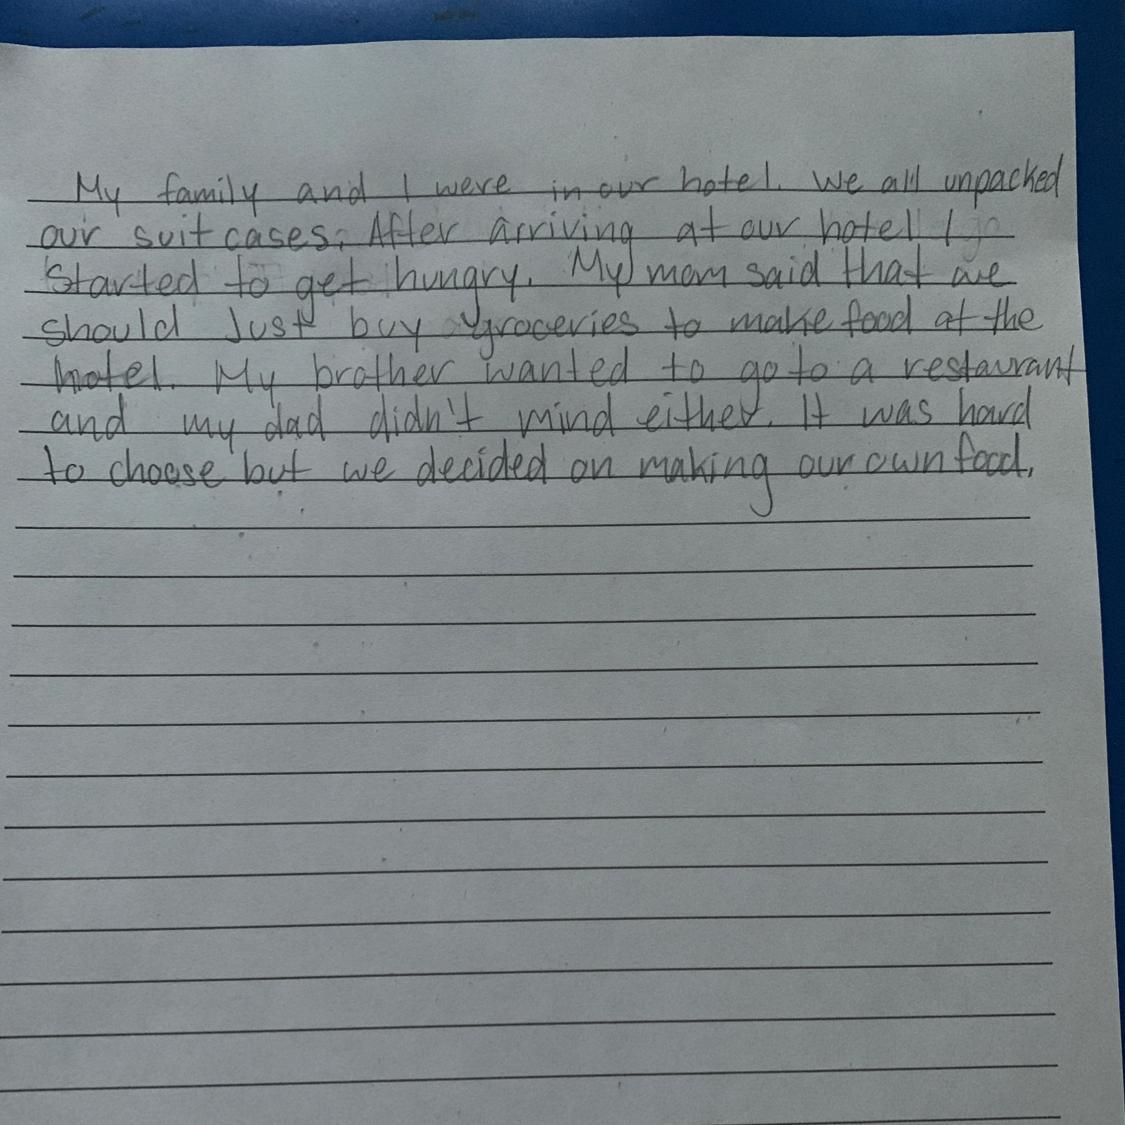 My family and I were in our hotel. We all unpacked
our suitcases. After arriving at our hotel I
started to get hungry. My mom said that we
should Just buy groceries to make food at the
hotel. My brother wanted to go to a restaurant
and my dad didn't mind either. It was hard
to choose but we decided on making our own food.